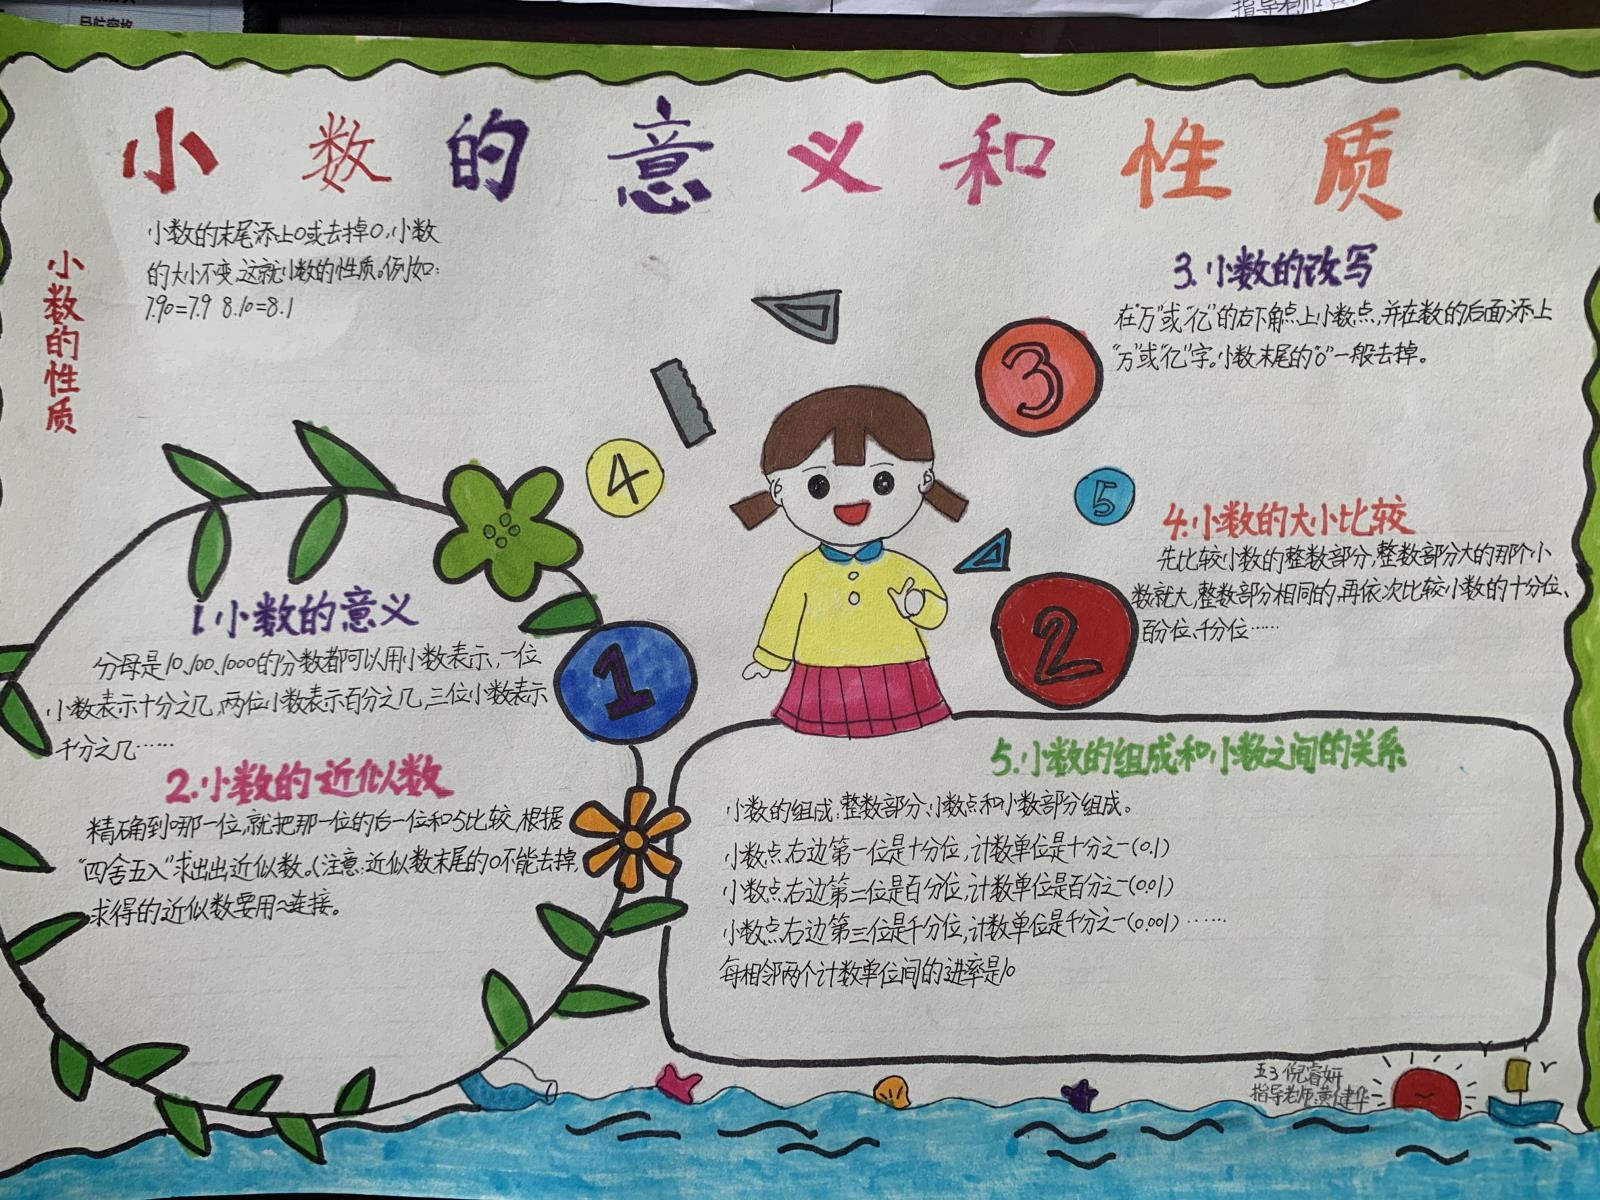 指导老师:黄
小数的意义和性质
小数的性质
小数的末尾添上0或去掉0,小数
的大小不变,这就小数的性质。例如:
7.90=7.9 8.10=8.1
1.小数的意义
分母是10、100、1000的分数都可以用小数表示,一位
小数表示十分之几,两位小数表示百分之几,三位小数表示
千分之几……
2.小数的近似数
精确到哪一位,就把那一位的后一位和5比较,根据
“四舍五入”求出出近似数。(注意:近似数末尾的0不能去掉,
求得的近似数要用~连接。
3.小数的改写
在“万”或“亿”的右下角点上小数点,并在数的后面添上
“万”或“亿”字。小数末尾的“0”一般去掉。
4.小数的大小比较
先比较小数的整数部分,整数部分大的那个小
数就大,整数部分相同的,再依次比较小数的十分位、
百分位、千分位……
5.小数的组成和小数之间的关系
小数的组成:整数部分、小数点和小数部分组成。
小数点右边第一位是十分位,计数单位是十分之一(0.1)
小数点右边第二位是百分位,计数单位是百分之一(0.01)
小数点右边第三位是千分位,计数单位是千分之一(0.001)……
每相邻两个计数单位间的进率是10
4
3
5
2
1
五3 倪睿妍
指导老师:黄健华